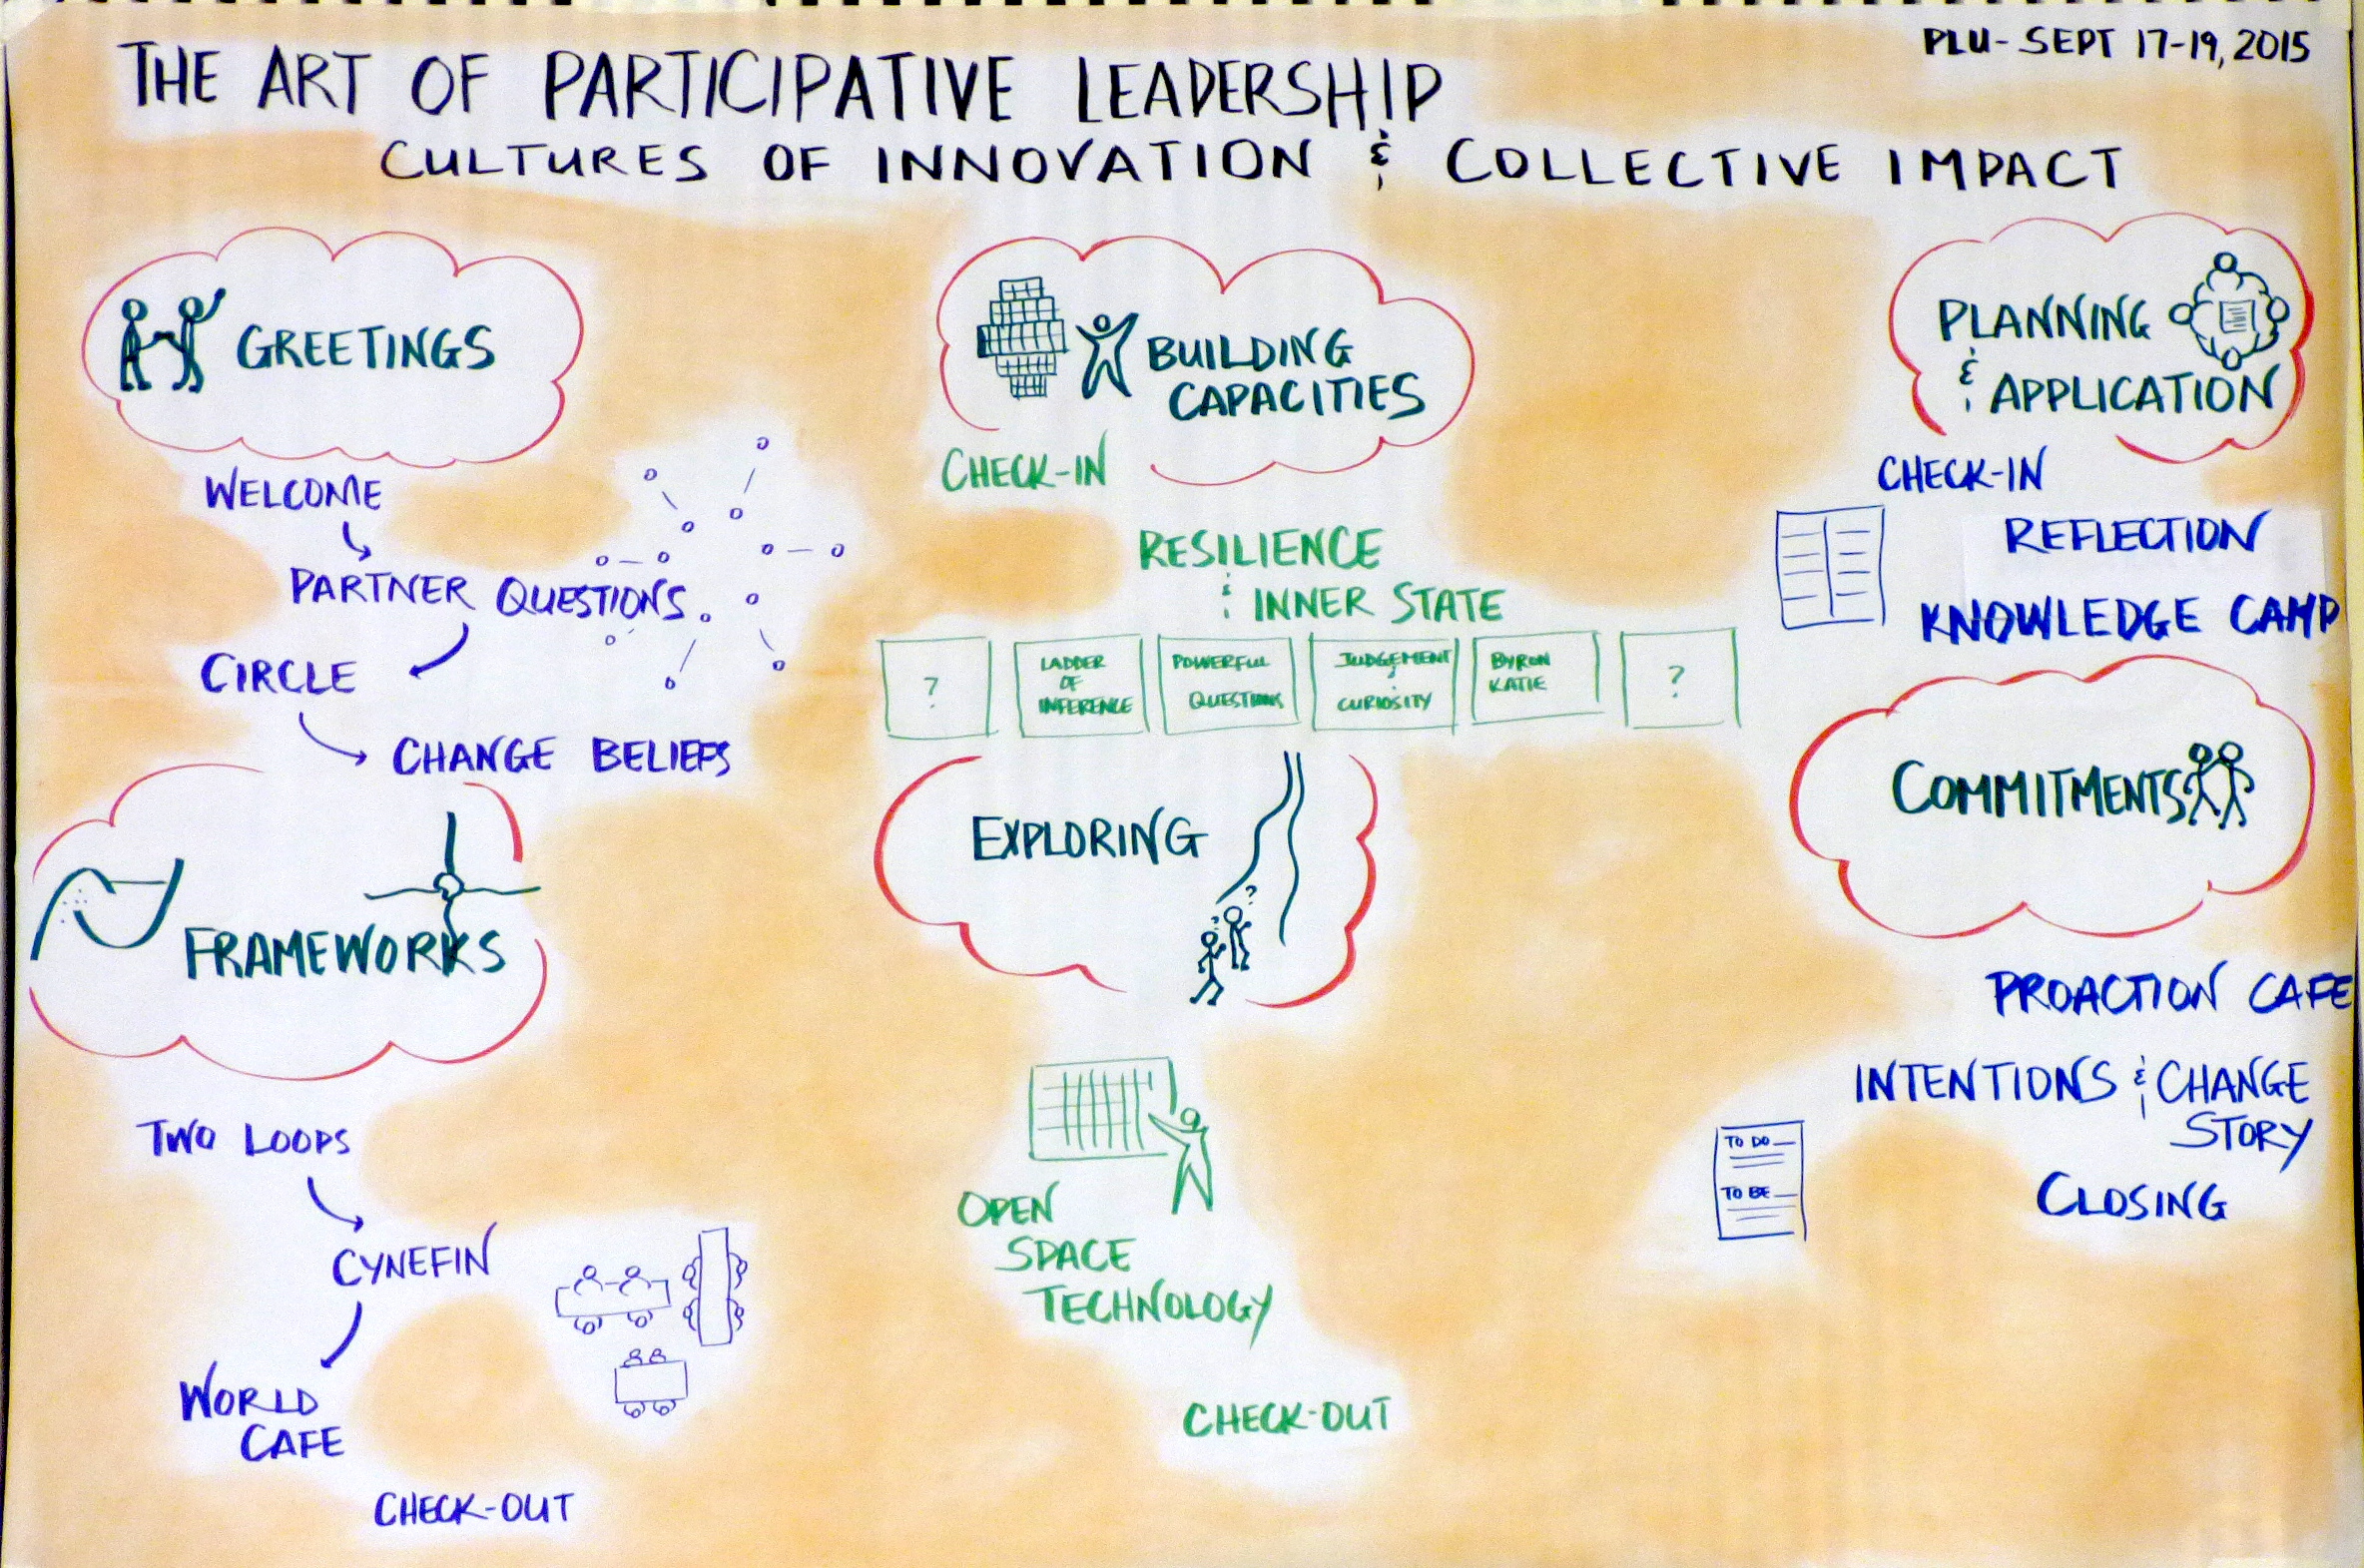 PLU - SEPT 17-19, 2015
THE ART OF PARTICIPATIVE LEADERSHIP
CULTURES OF INNOVATION & COLLECTIVE IMPACT
GREETINGS
WELCOME
PARTNER QUESTIONS
CIRCLE
CHANGE BELIEFS
FRAMEWORKS
TWO LOOPS
CYNEFIN
WORLD
CAFE
CHECK-OUT
BUILDING
CAPACITIES
CHECK-IN
RESILIENCE
& INNER STATE
?
LADDER
OF
INFERENCE
POWERFUL
QUESTIONS
JUDGEMENT
&
CURIOSITY
BYRON
KATIE
?
EXPLORING
?
?
OPEN
SPACE
TECHNOLOGY
CHECK-OUT
PLANNING
& APPLICATION
CHECK-IN
REFLECTION
KNOWLEDGE CAMP
COMMITMENTS
PROACTION CAFE
INTENTIONS & CHANGE
STORY
TO DO
TO BE
CLOSING